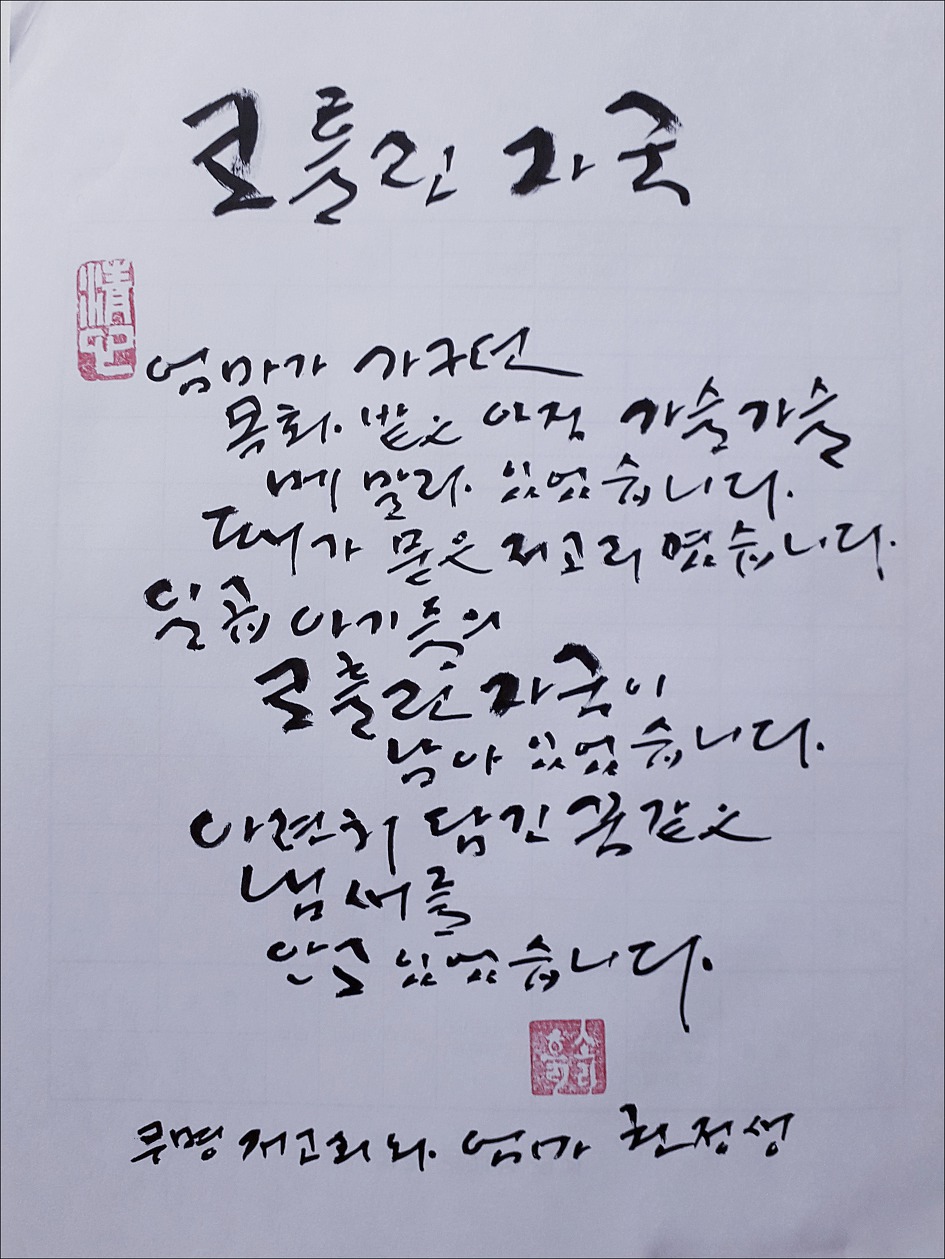 코흘린 자국
엄마가 가꾸던
목화. 밭은 아직 가슬가슬
메말라. 있었습니다.
때가 묻은 저고리였습니다.
일곱 아기들의
코흘린 자국이
남아 있었습니다.
아련히 담긴 꽃같은
냄새를
안고 있었습니다.
소리
무명 저고리와. 엄마 권정생